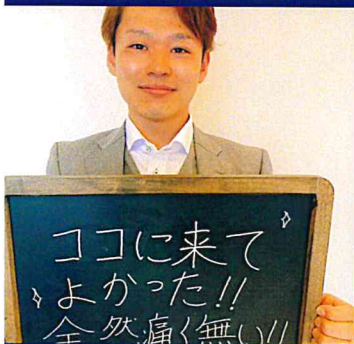 ココに来て
よかった!!
全然痛く無い!!